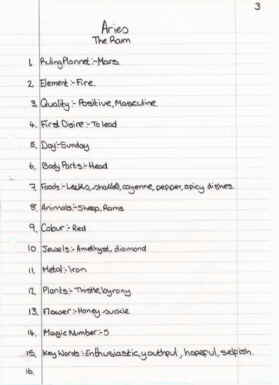 3
Aries
The Ram
1. Ruling Plannet:- Mars
2. Element:- Fire.
3. Quality:- Positive, Masculine
4. First Disire:- To lead
5. Day:- Sunday
6. Body Parts:- Head
7. Foods:- Leeks, shallot, cayenne, pepper, spicy dishes.
8. Animals:- Sheep, Rams
9. Colour:- Red
10. Jewels:- Amethyst, diamond
11. Metal:- Iron
12. Plants:- Thistle, bryony
13. Flower:- Honey-suckle
14. Magic Number:- 5
15. Key Words:- Enthusiastic, youthful, hopeful, selfish.
16.